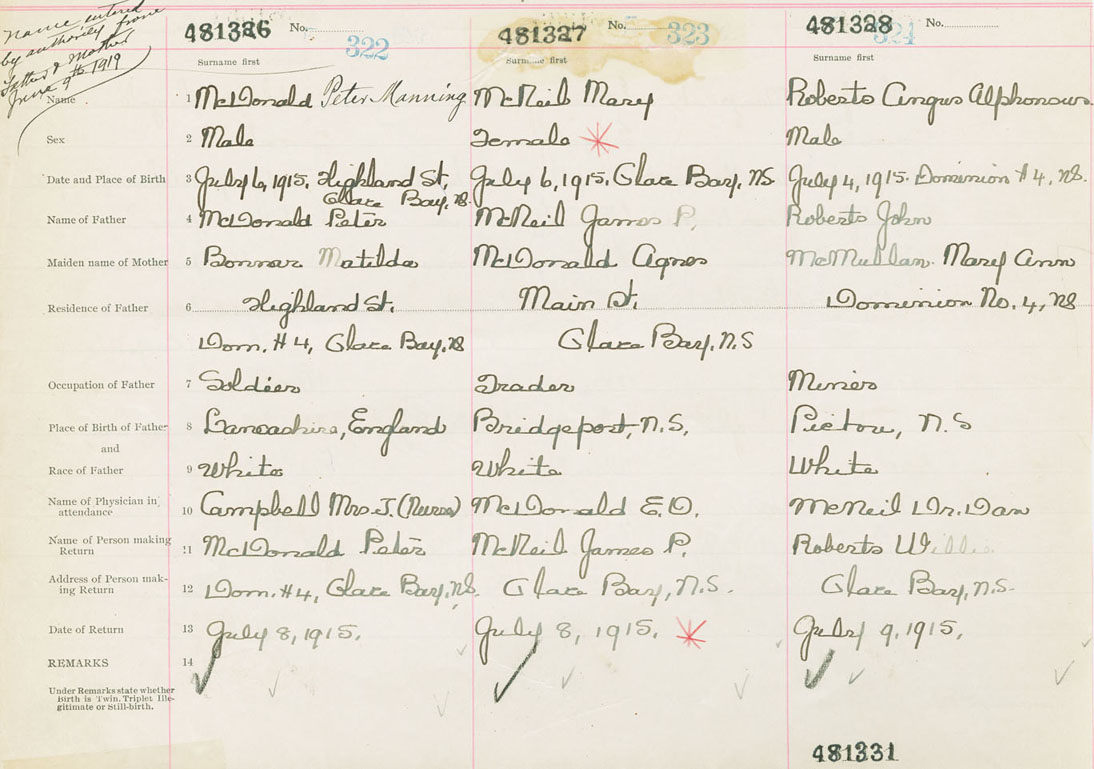 Name entered
by authority from
Father & Mother
June 9th 1919
481326 No. 322 481327 No. 323 481328 No. 324
Surname first Surname first Surname first
Name 1 McDonald Peter Manning McNeil Mary Roberts Angus Alphonsus
Sex 2 Male Female Male
Date and Place of Birth 3 July 6, 1915. Highland St, July 6, 1915. Glace Bay, NS July 4, 1915. Dominion #4, NS.
Glace Bay, NS.
Name of Father 4 McDonald Peter McNeil James P. Roberts John
Maiden name of Mother 5 Bonnar Matilda McDonald Agnes McMullan Mary Ann
Residence of Father 6 Highland St. Main St. Dominion No. 4, NS
Dom. #4, Glace Bay, NS Glace Bay, N.S
Occupation of Father 7 Soldier Trader Miner
Place of Birth of Father 8 Lancashire, England Bridgeport, N.S, Pictou, N.S
and
Race of Father 9 White White White
Name of Physician in
attendance 10 Campbell Mrs J. (Nurse) McDonald E.O. McNeil Dr. Dan
Name of Person making
Return 11 McDonald Peter McNeil James P. Roberts Willis
Address of Person mak-
ing Return 12 Dom. #4, Glace Bay, NS. Glace Bay, N.S. Glace Bay, N.S.
Date of Return 13 July 8, 1915. July 8, 1915. July 9, 1915.
REMARKS 14
Under Remarks state whether
Birth is Twin, Triplet Ille-
gitimate or Still-birth.
481331